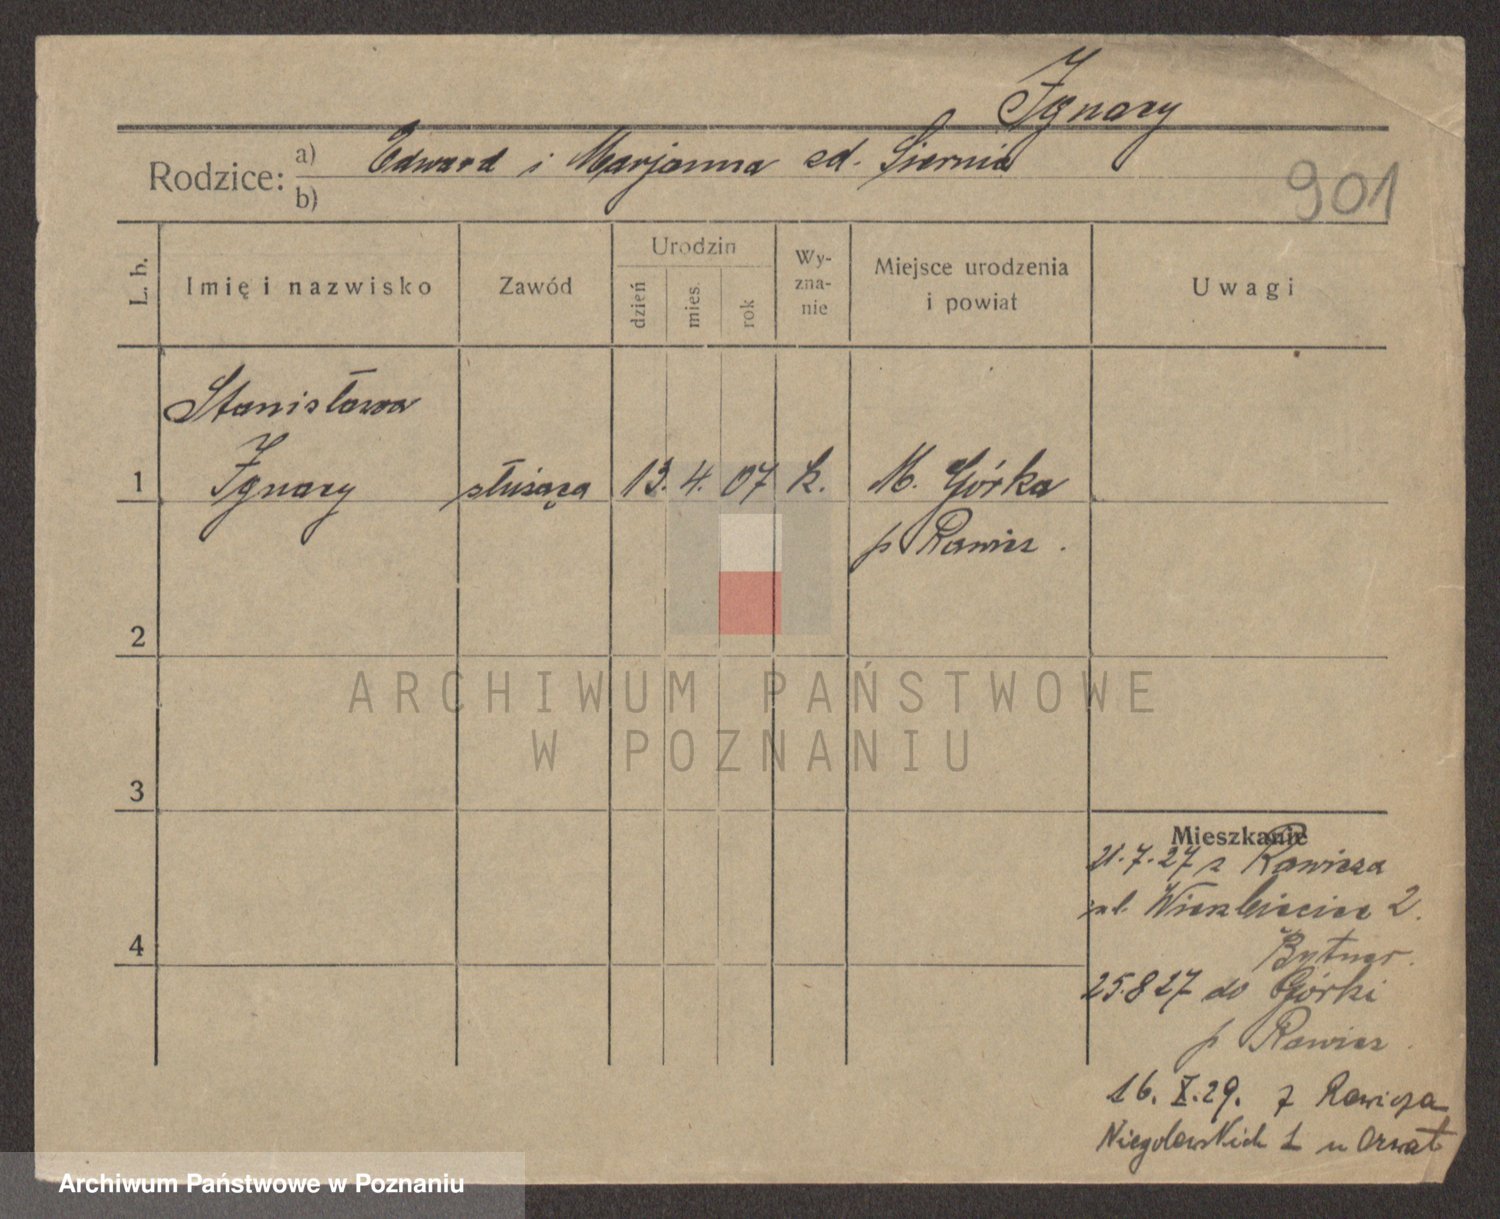 Ignasy
Rodzice: a) Edward i Marjanna zd. Siernia
b)
901
L. b.
Imię i nazwisko
Zawód
Urodzin
dzień
mies.
rok
Wy-
zna-
nie
Miejsce urodzenia
i powiat
Uwagi
Stanisława
1 Ignasy służąca 13. 4. 07 k. M. Górka
p Rawicz.
2
ARCHIWUM PAŃSTWOWE
W POZNANIU
3
Mieszkanie
21.7.27 z Rawicza
ul. Wierzbięcice 2.
Bytner.
4
25.8 27 do Górki
p Rawicz.
16. X. 29. z Rawicza
Niegolewskich 1 u
Archiwum Państwowe w Poznaniu